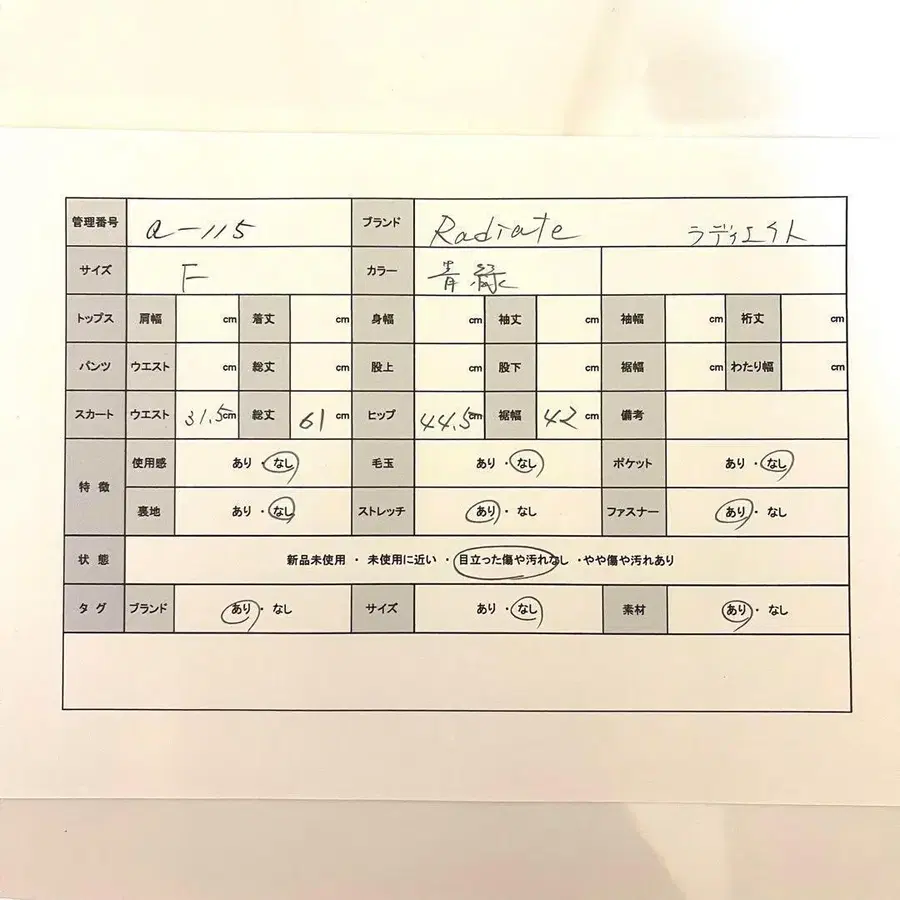 管理番号 a-115 ブランド Radiate ラディエイト
サイズ F カラー 青緑
トップス 肩幅 cm 着丈 cm 身幅 cm 袖丈 cm 袖幅 cm 裄丈 cm
パンツ ウエスト cm 総丈 cm 股上 cm 股下 cm 裾幅 cm わたり幅 cm
スカート ウエスト 31.5cm 総丈 61cm ヒップ 44.5cm 裾幅 42cm 備考
特徴 使用感 あり・なし 毛玉 あり・なし ポケット あり・なし
裏地 あり・なし ストレッチ あり・なし ファスナー あり・なし
状態 新品未使用 ・ 未使用に近い ・ 目立った傷や汚れなし ・やや傷や汚れあり
タグ ブランド あり・なし サイズ あり・なし 素材 あり・なし